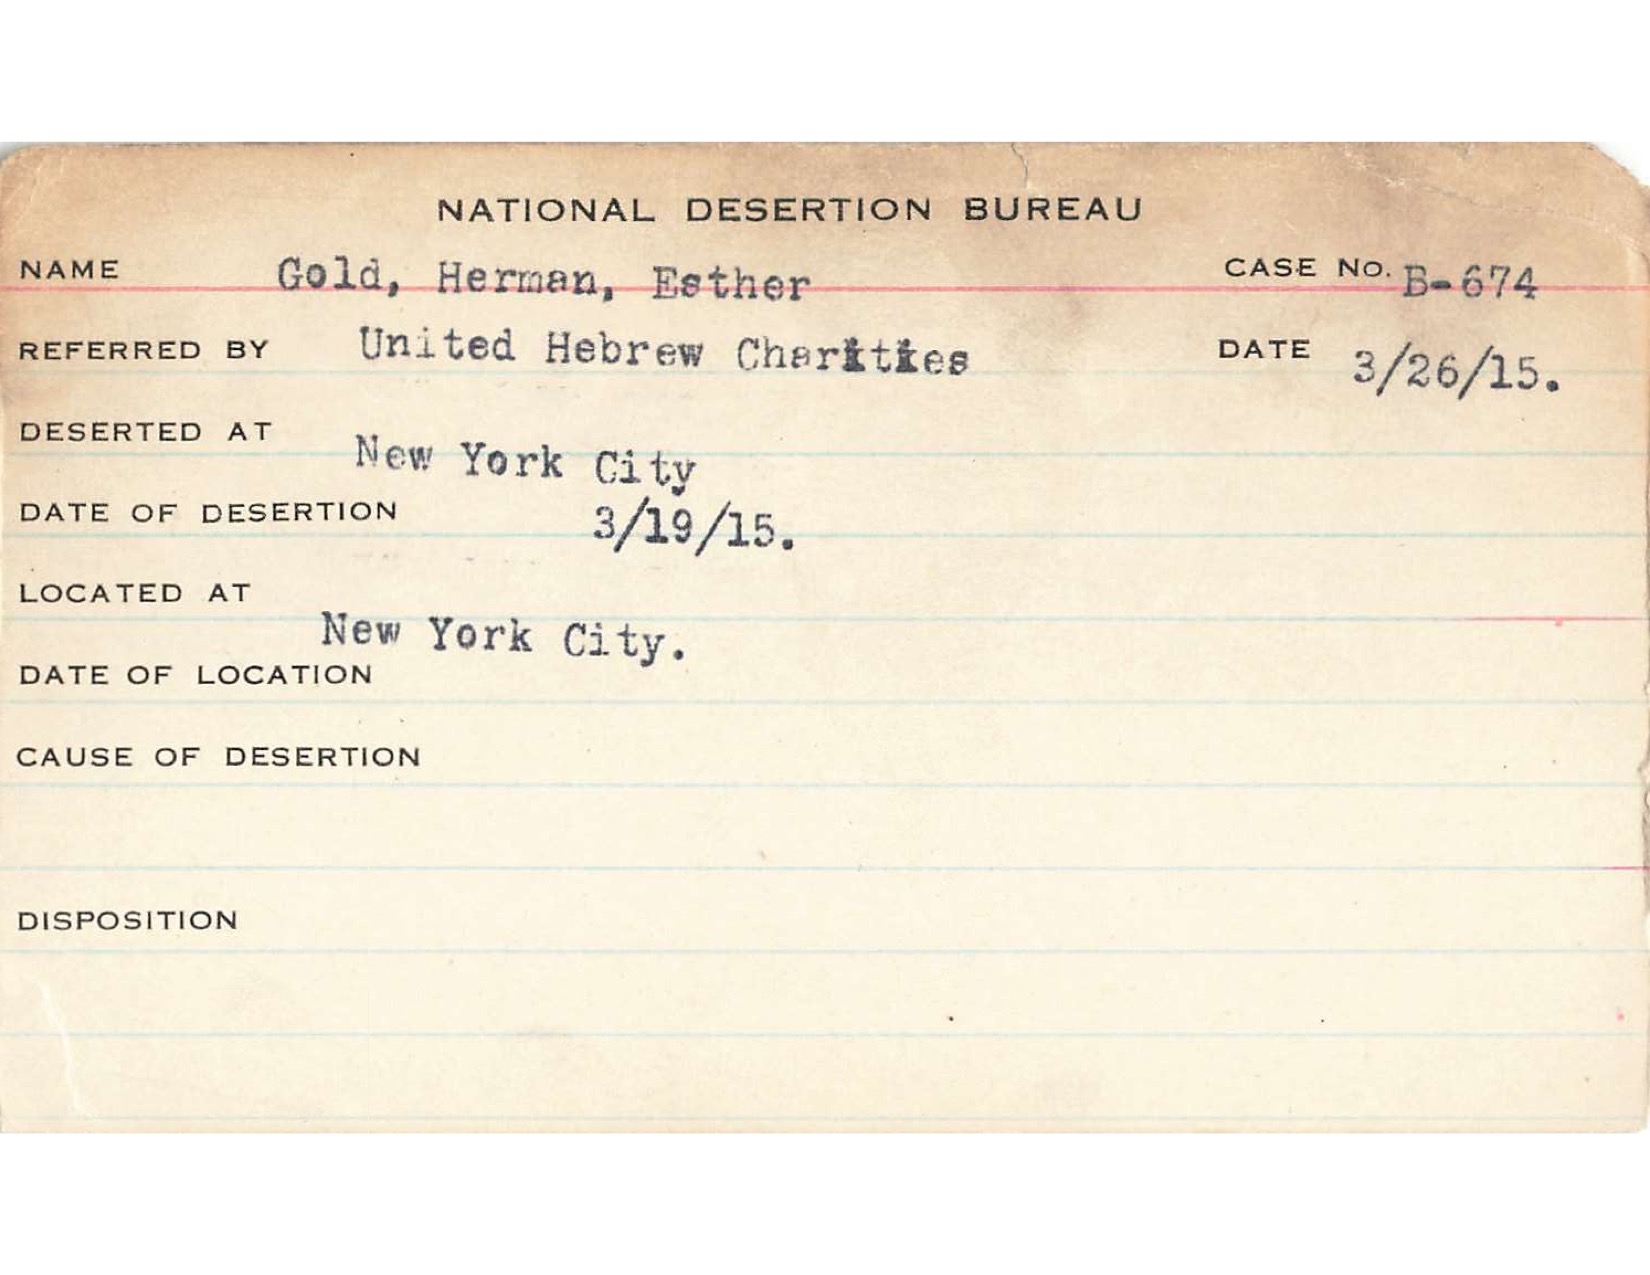 NATIONAL DESERTION BUREAU
NAME Gold, Herman, Esther CASE No. B-674
REFERRED BY United Hebrew Charities DATE 3/26/15.
DESERTED AT New York City
DATE OF DESERTION 3/19/15.
LOCATED AT New York City.
DATE OF LOCATION
CAUSE OF DESERTION
DISPOSITION